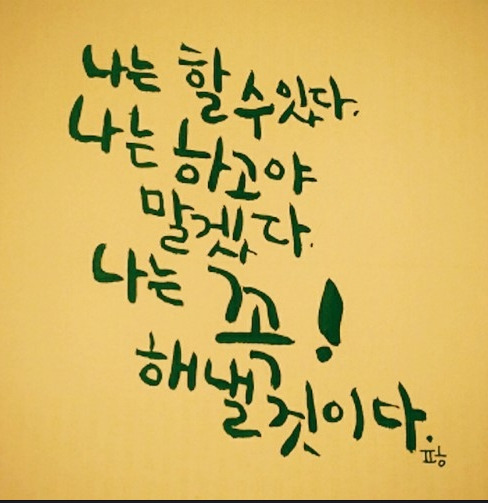 나는 할 수 있다.
나는 하고야
말겠다.
나는 꼬!
해낼 것이다.